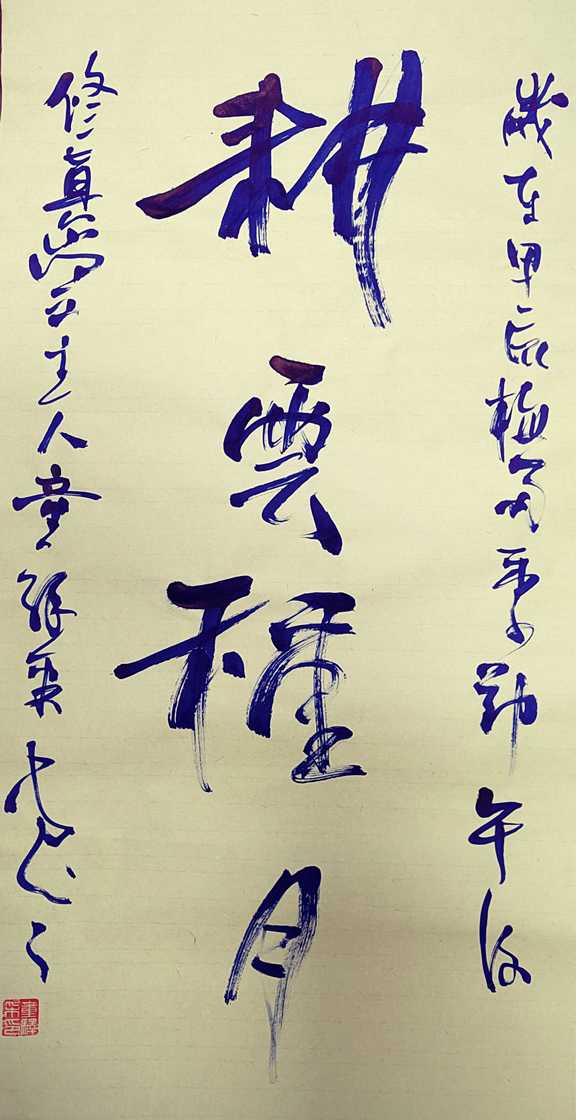 歲在甲辰梅雨季節午後
耕雲種月
修真齋主人童